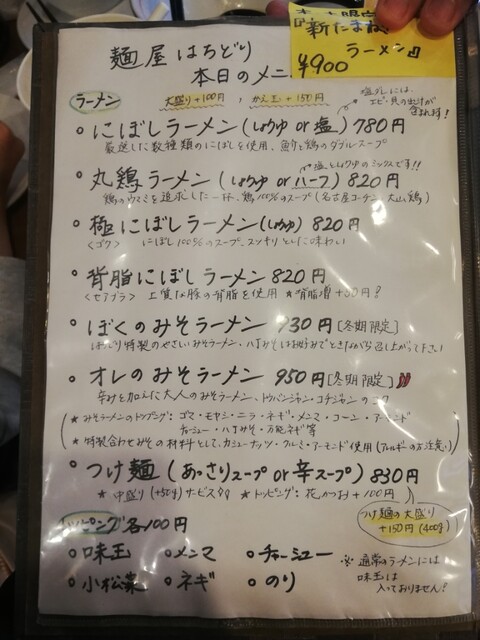 新たまね
ラーメン
¥900
麺屋はちどり
本日のメニ
ラーメン
大盛り+100円 , かえ玉+150円
塩ダレには、
エビ・貝の出汁が
含まれます!
○にぼしラーメン(しょうゆ or 塩) 780円
厳選した数種類のにぼしを使用、魚介と鶏のダブルスープ
塩としょうゆのミックスです!!
○丸鶏ラーメン(しょうゆ or ハーフ) 820円
鶏のウマミを追求した一杯、鶏100%のスープ(名古屋コーチン、大山鶏)
○極にぼしラーメン(しょうゆ) 820円
<ゴク> にぼし100%のスープ、スッキリとした味わい
○背脂にぼしラーメン 820円
<セアブラ> 上質な豚の背脂を使用 ★背脂増+50円!
○ぼくのみそラーメン 930円[冬期限定]
はちどり特製のやさしいみそラーメン、八丁みそはお好みでときながら召し上がって下さい
○オレのみそラーメン 950円[冬期限定]
辛みを加えた大人のみそラーメン、トウバンジャン・コチジャンのコク
(★みそラーメンのトッピング: ゴマ・モヤシ・ニラ・ネギ・メンマ・コーン・アーモンド
チャーシュー・八丁みそ・万能ネギ等
★特製合わせみその材料として、カシューナッツ・クルミ・アーモンド使用(アレルギーの方注意))
○つけ麺(あっさりスープ or 辛スープ) 830円
★中盛り(+50g)サービス ★トッピング: 花かつお+100円
つけ麺の大盛り
+150円(400g)
トッピング各100円
○味玉 ○メンマ ○チャーシュー
○小松菜 ○ネギ ○のり
※通常のラーメンには
味玉は
入っておりません!